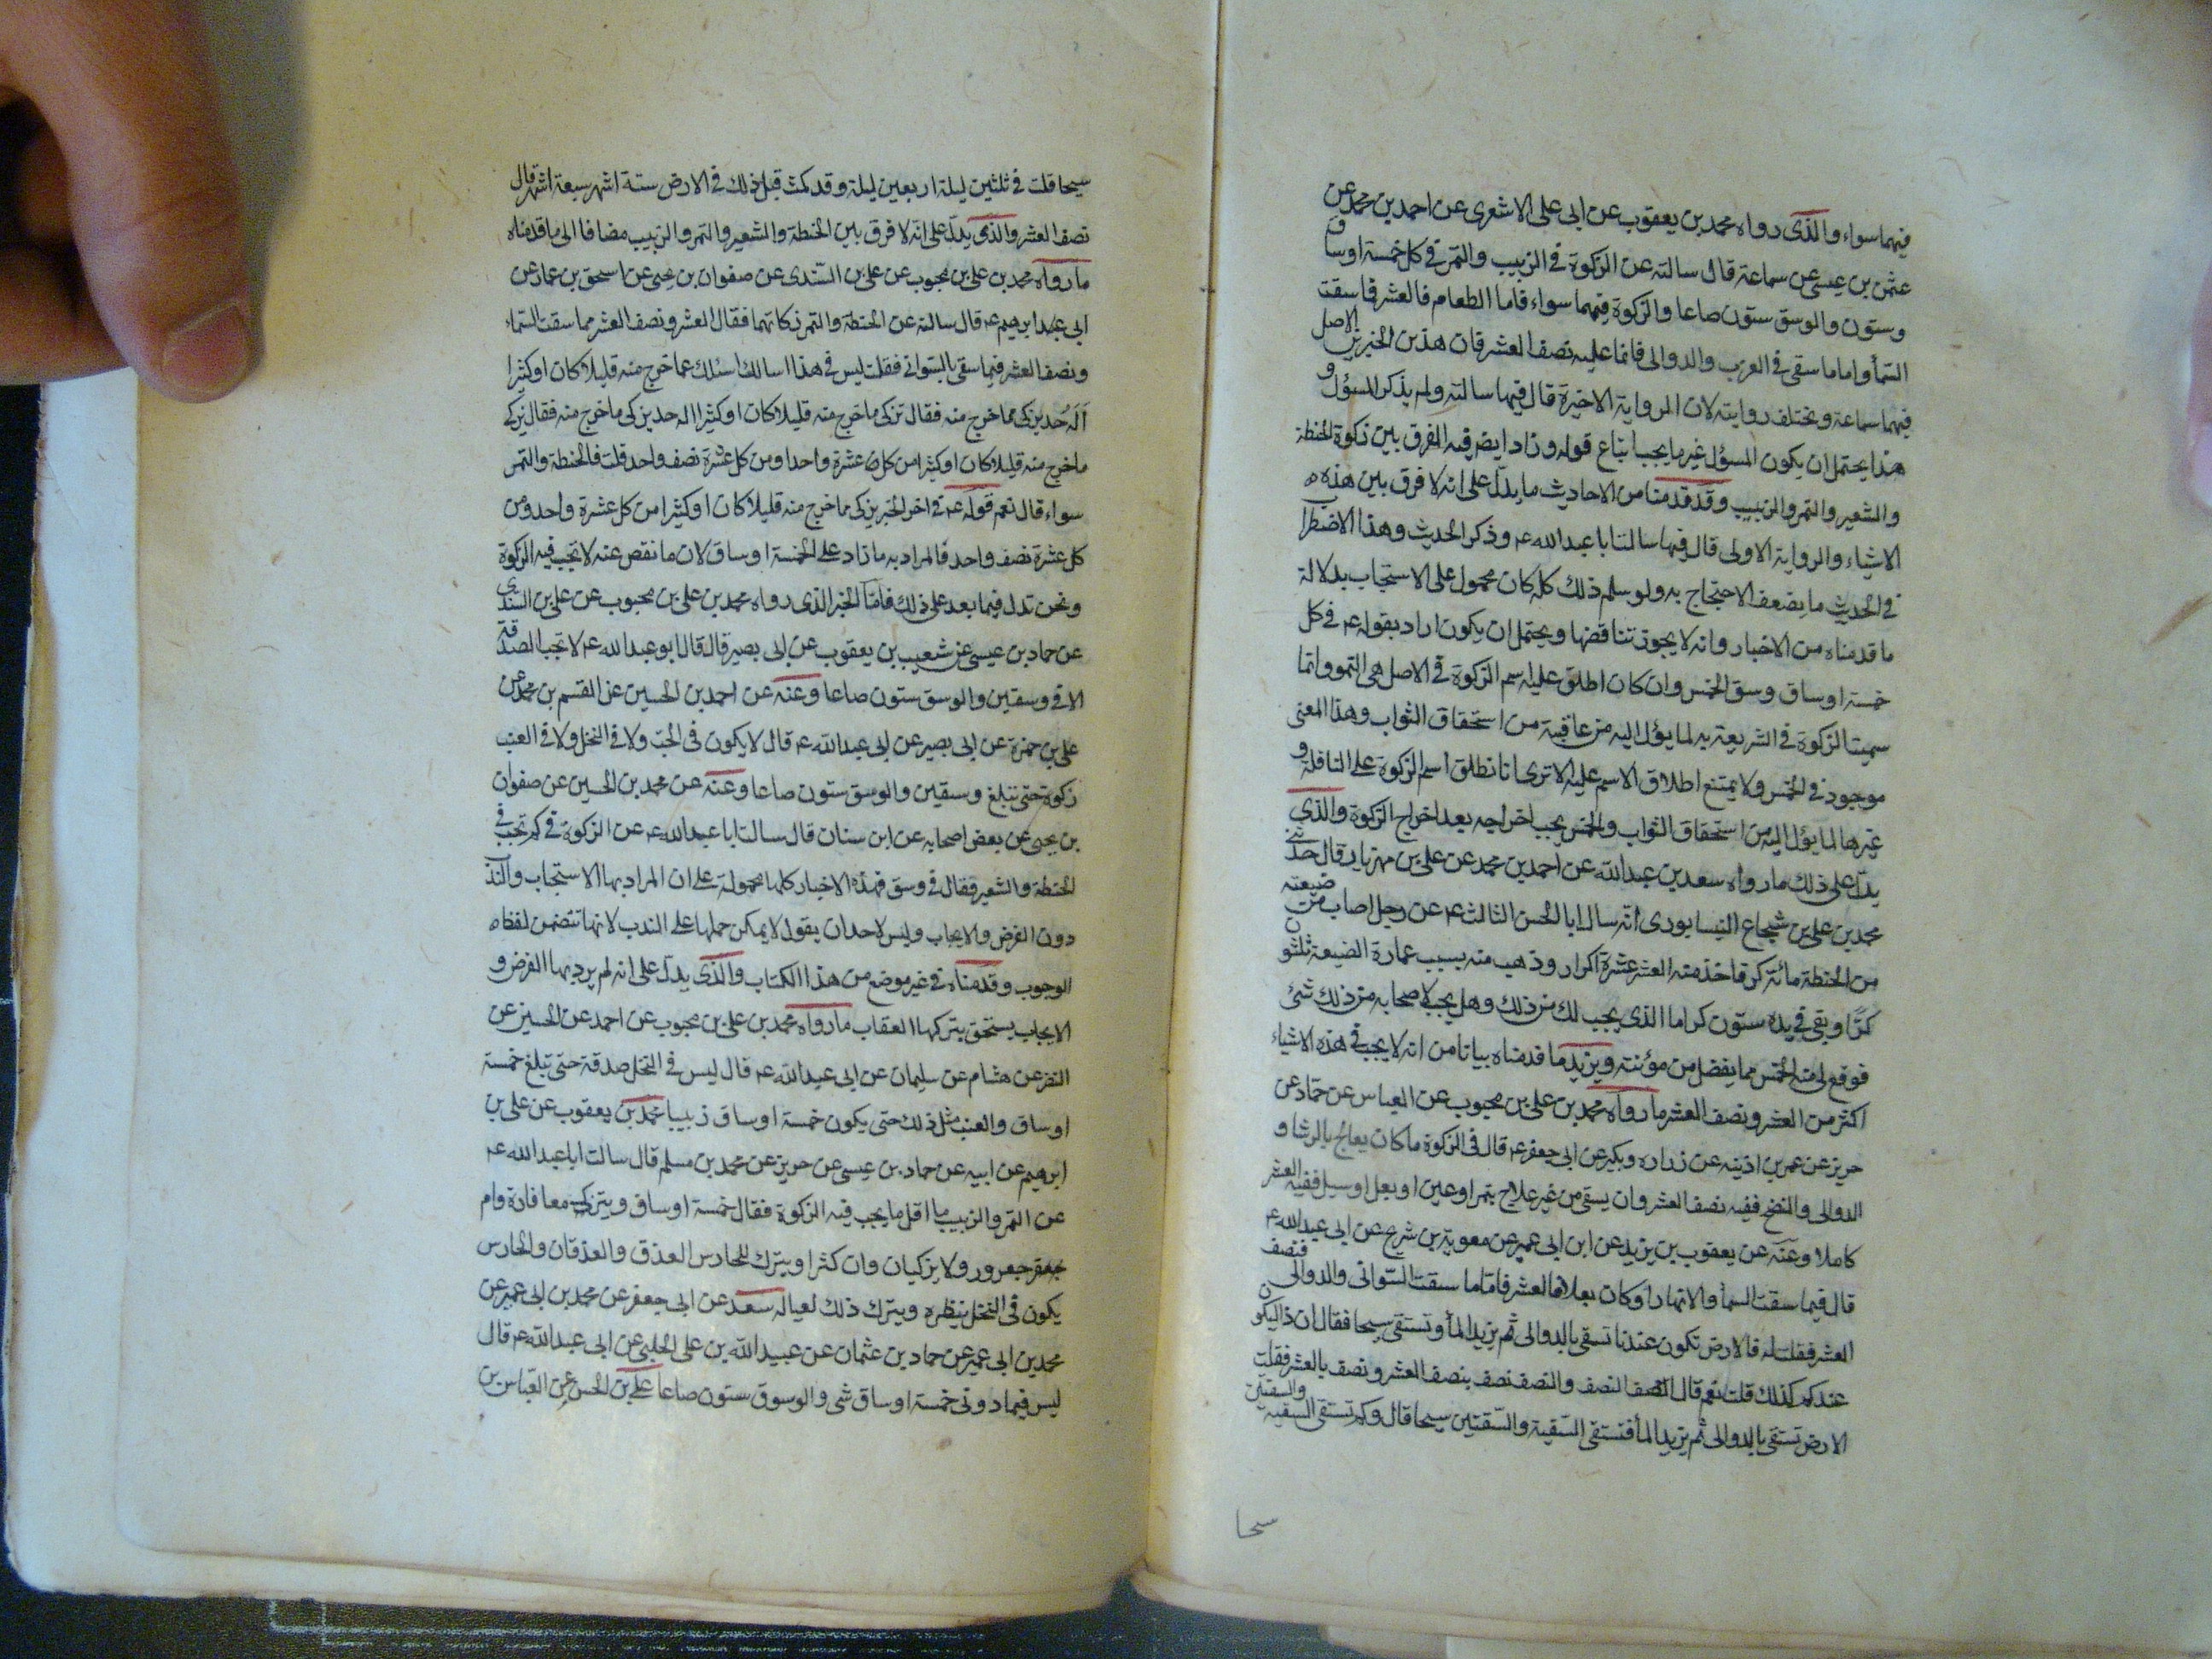 فيهما سواء والذى رواه محمد بن يعقوب عن ابى على الاشعرى عن احمد بن محمد عن
عثمن بن عيسى عن سماعة قال سالته عن الزكوة فى الزبيب والتمر فى كل خمسة اوساق
وستون والوسق ستون صاعا والزكوة فيهما سواء فاما الطعام فالعشر فيما سقت
السمأ واما ما سقى فى الغرب والدوالى فانما عليه نصف العشر فان هذين الخبرين الاصل
فيهما سماعة وتختلف روايته لان الرواية الاخيرة قال فيها سالته ولم يذكر المسؤل و
هذا يحتمل ان يكون المسؤل غير ما يجب اتباع قوله وزاد ايض فيه الفرق بين زكوة الحنطة
والشعير والتمر والزبيب وقد قدمنا من الاحاديث ما يدل على انه لا فرق بين هذه
الاشياء والرواية الاولى قال فيها سالت ابا عبد الله ع وذكر الحديث وهذا الاضطراب
فى الحديث ما يضعف الاحتجاج به ولو سلم ذلك كله كان محمول على الاستحباب بدلالة
ما قدمناه من الاخبار وانه لا يجوز تناقضها ويحتمل ان يكون اراد بقوله ع فى كل
خمسة اوساق وسق الخمس وان كان اطلق عليه اسم الزكوة فى الاصل هى النمو وانما
سميت الزكوة فى الشريعة به لما يؤل اليه من عاقبة من استحقاق الثواب وهذا المعنى
موجود فى الخمس ولا يمتنع اطلاق الاسم عليه الا ترى انا نطلق اسم الزكوة على النافلة و
غيرها لما يؤل اليه من استحقاق الثواب والخمس يجب اخراجه بعد اخراج الزكوة والذى
يدل على ذلك ما رواه سعد بن عبد الله عن احمد بن محمد عن على بن مهزيار قال حدثنى
محمد بن على بن شجاع النيسابورى انه سال ابا الحسن الثالث ع عن رجل اصاب من ضيعته
من الحنطة مائة كر فاخذ منه العشر عشرة اكرار وذهب منه بسبب عمارة الضيعة ثلثون
كرا وبقى فى يده ستون كرا ما الذى يجب لك من ذلك وهل يجب لاصحابه من ذلك شئ
فوقع لى منه الخمس مما يفضل من مؤنته ويزيد ما قدمناه بيانا من انه لا يجب فى هذه الاشياء
اكثر من العشر ونصف العشر ما رواه محمد بن على بن محبوب عن العباس عن حماد عن
حريز عن عمر بن اذينه عن زراره وبكير عن ابى جعفر ع قال فى الزكوة ما كان يعالج بالرشا و
الدوالى والنضح ففيه نصف العشر وان يسقى من غير علاج بنهر او عين او بعل او سيل ففيه العشر
كاملا وعنه عن يعقوب بن يزيد عن ابن ابى عمير عن معوية بن شريح عن ابى عبد الله ع
قال فيما سقت السمأ والانهار او كان بعلا فالعشر فاما ما سقت السوانى والدوالى فنصف
العشر فقلت له فالارض تكون عندنا تسقى بالدوالى ثم يزيد المأ وتستقى سيحا فقال ان ذا ليكون
عندكم كذلك قلت نعم قال النصف والنصف نصف بنصف العشر ونصف بالعشر فقلت
الارض تستقى بالدوالى ثم يزيد المأ فتستقى السقية والسقتين سيحا قال وكم تستقى السقية والسقيتين
سيحا
سيحا قلت فى ثلثين ليلة اربعين ليلة وقد مكث قبل ذلك فى الارض ستة اشهر سبعة اشهر قال
نصف العشر والذى يدل على انه لا فرق بين الحنطة والشعير والتمر والزبيب مضافا الى ما قدمناه
ما رواه محمد بن على بن محبوب عن على بن السندى عن صفوان بن يحيى عن اسحق بن عمار عن
ابى ابرهيم ع قال سالته عن الحنطة والتمر زكاتهما فقال العشر ونصف العشر مما سقت السماء
ونصف العشر فيما سقى بالسوانى فقلت ليس فى هذا اسالك اسئلك عما خرج منه قليلا كان او كثيرا
اله حد يزكى مما خرج منه فقال تزكى ما خرج منه قليلا كان او كثيرا اله حد يزكى ما خرج منه فقال يزكى
ما خرج منه قليلا كان او كثيرا من كل عشرة واحدا ومن كل عشرة نصف واحد قلت فالحنطة والتمر
سواء قال نعم قوله ع فى اخر الخبر يزكى ما خرج منه قليلا كان او كثيرا من كل عشرة واحد ومن
كل عشرة نصف واحد فالمراد به ما زاد على الخمسة اوساق لان ما نقص عنه لا تجب فيه الزكوة
ونحن ندل فيما بعد على ذلك فاما الخبر الذى رواه محمد بن على بن محبوب عن على بن السندى
عن حماد بن عيسى عن شعيب بن يعقوب عن ابى بصير قال قال ابو عبد الله ع لا تجب الصدقة
الا فى وسقين والوسق ستون صاعا وعنه عن احمد بن الحسين عن القسم بن محمد عن
على بن حمزة عن ابى بصير عن ابى عبد الله ع قال لا يكون فى الحب ولا فى النخل ولا فى العنب
زكوة حتى تبلغ وسقين والوسق ستون صاعا وعنه عن محمد بن الحسين عن صفوان
بن يحيى عن بعض اصحابه عن ابن سنان قال سالت ابا عبد الله ع عن الزكوة فى كم تجب فى
الحنطة والشعير فقال فى وسق فهذه الاخبار كلها محمولة على ان المراد بها الاستحباب والند
دون الفرض والايجاب وليس لاحد ان يقول لا يمكن حملها على الندب لانها تتضمن لفظ
الوجوب وقدمناه فى غير موضع من هذا الكتاب والذى يدل على انه لم يرد بها الفرض و
الايجاب يستحق بتركها العقاب ما رواه محمد بن على بن محبوب عن احمد عن الحسين عن
النضر عن هشام عن سليمان عن ابى عبد الله ع قال ليس فى النخل صدقة حتى تبلغ خمسة
اوساق والعنب مثل ذلك حتى يكون خمسة اوساق زبيبا محمد بن يعقوب عن على بن
ابرهيم عن ابيه عن حماد بن عيسى عن حريز عن محمد بن مسلم قال سالت ابا عبد الله ع
عن التمر والزبيب ما اقل ما يجب فيه الزكوة فقال خمسة اوساق ويترك معافارة وام
جعرور ولا يزكيان وان كثرا ويترك للحارس العذق والعذقان والحارس
يكون فى النخل ينظره ويترك ذلك لعياله سعد عن ابى جعفر عن محمد بن ابى عمير عن
محمد بن ابى عمير عن حماد بن عثمان عن عبيد الله بن على الحلبى عن ابى عبد الله ع قال
ليس فيما دون خمسة اوساق شى والوسوق ستون صاعا على بن الحسن عن العباس بن